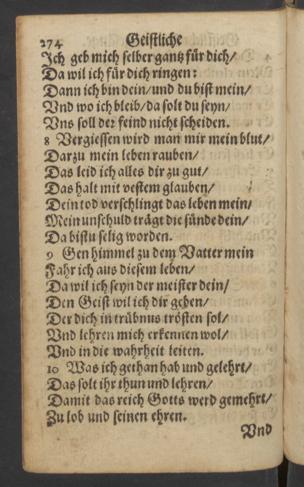 274 Geistliche
Ich geb mich selber gantz für dich/
Da wil ich für dich ringen:
Dann ich bin dein/ und du bist mein/
Vnd wo ich bleib/ da solt du seyn/
Vns soll der feind nicht scheiden.
8 Vergiessen wird man mir mein blut/
Darzu mein leben rauben/
Das leid ich alles dir zu gut/
Das halt mit vestem glauben/
Dein tod verschlingt das leben mein/
Mein unschuld trägt die sünde dein/
Da bistu selig worden.
9 Gen himmel zu dem Vatter mein
Fahr ich aus diesem leben/
Da wil ich seyn der meister dein/
Den Geist wil ich dir geben/
Der dich in trübnus trösten sol/
Vnd lehren mich erkennen wol/
Vnd in die wahrheit leiten.
10 Was ich gethan hab und gelehrt/
Das solt ihr thun und lehren/
Damit das reich Gotts werd gemehrt/
Zu lob und seinen ehren.
Vnd